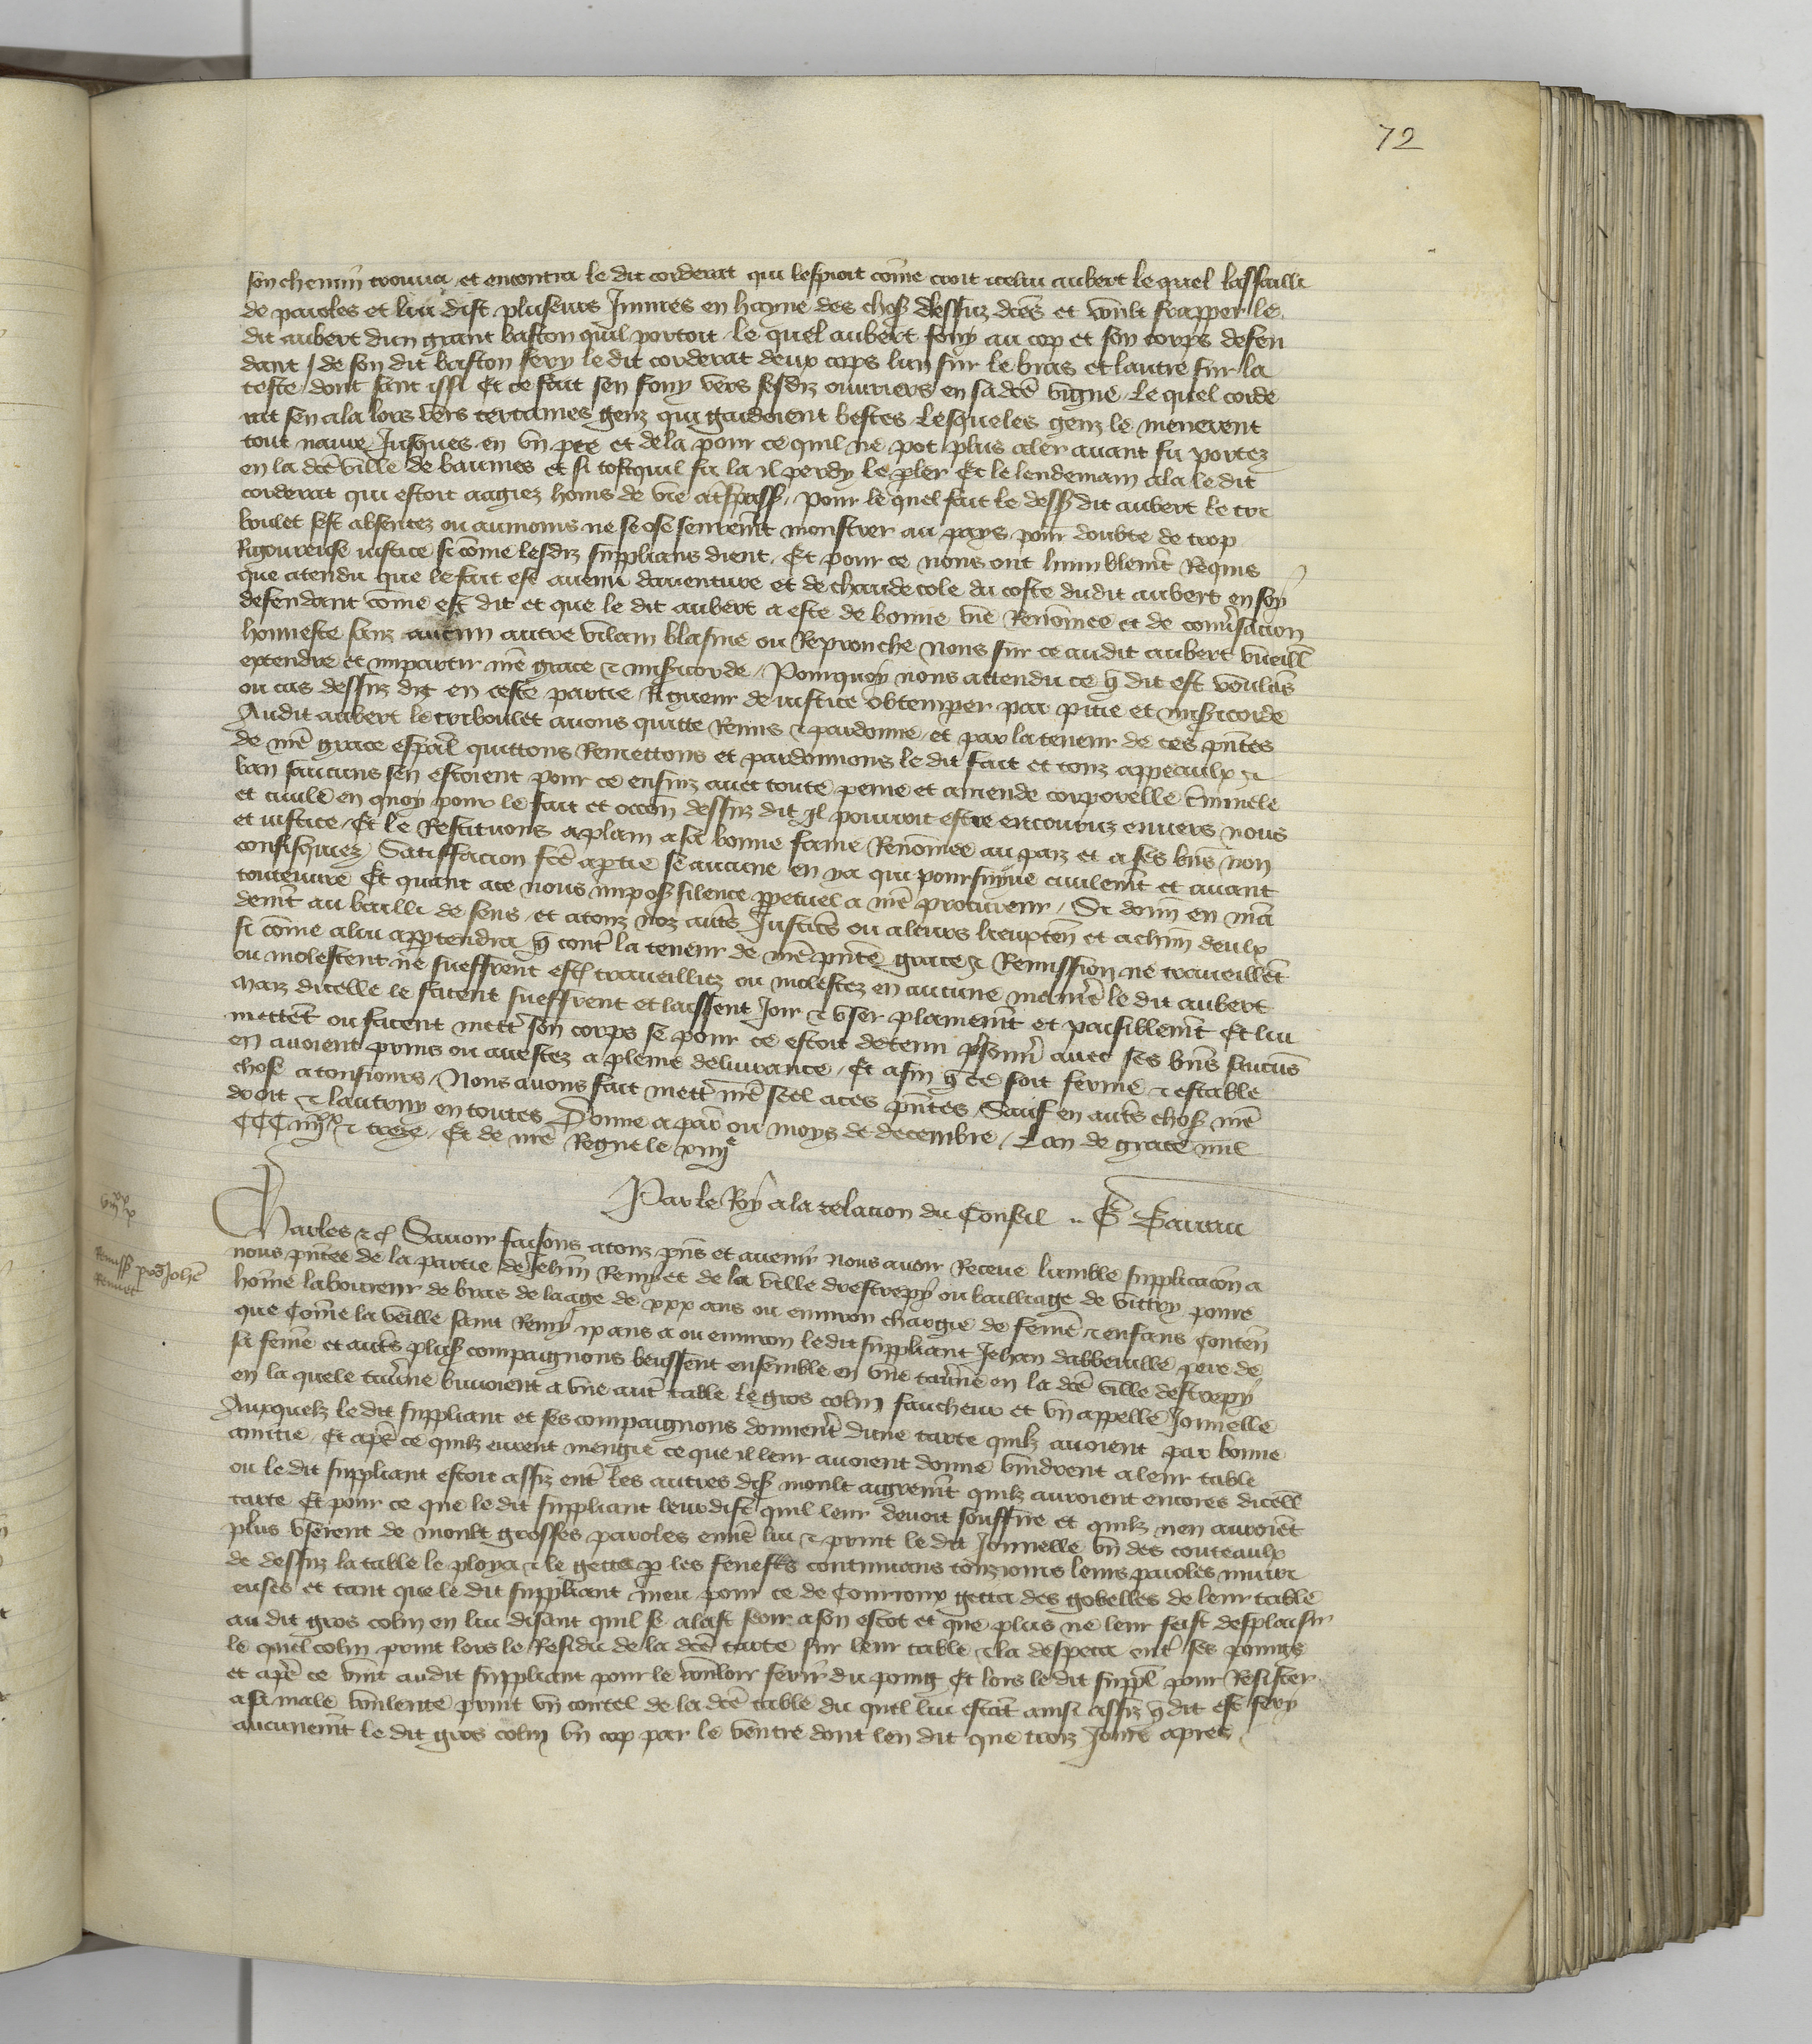 72
son chemin trouva et encontra le dit corderat qui lespioit come croit icelui aubert le quel lassailli
de paroles et lui dist pluseurs Iniures en hayne des choses dessuz dictes et voult frapper le
dit aubert dun grant baston quil portoit le quel aubert fouy au cop et son corps defen
dant / de son dit baston fery le dit corderat deux cops lun sur le bras et lautre sur la
teste dont sanc issi Et ce fait sen fouy vers sesdiz ouvriers en sa dce vigne Le quel corde
rat sen ala lors vers certaines genz qui gardoient bestes Lesqueles genz le menerent
tout navre Jusques en vn pre et dela pour ce quil ne pot plus aler avant fu portez
en la dce ville de baumes et si tost quil fu la il perdy le pler Et le lendemain ala le dit
corderat qui estoit aagiez homs de vie a trespass / pour le quel fait le dess dit aubert le tri
boulet sest absentez ou aumoins ne se ose seurement monstrer au pays pour doubte de trop
Rigoureuse iustice si come lesdiz supplians dient / Et pour ce nous ont humblemt Requis
que atendu que le fait est avenu daventure et de chaude cole du coste dudit aubert en soy
defendant come est dit et que le dit aubert a este de bonne vie Renomee et de conversacion
honneste sanz aucun autre vilain blasme ou Reprouche nous sur ce au dit aubert vueill
extendre et impartir nre grace & misericorde / Pourquoy nous attendu ce q dit est voulans
ou cas dessuz dit en ceste partie Rigueur de iustice obtemperer par pitie et misericorde
Audit aubert le triboulet avons quitte Remis & pardonne et par la teneur de ces pntes
de nre grace espal quittons Remettons et pardonnons le dit fait et touz appeaulx &
ban saucuns sen estoient pour ce ensuiz avec toute peine et amende corporelle criminele
et civile en quoy pour le fait et occon dessuz dit Il pourroit estre encouruz envers nous
et iustice / Et le Restituons a plain a sa bonne fame Renomee au paiz et a ses biens non
confisquez Satisfacion fce a ptie se aucune en ya qui poursuyve civilemt et avant
toutevure Et quant a ce nous imposons silence ppetuel a nre procureur / Si donn en man
demt au bailli de sens et a touz noz autres Justices ou a leurs lieuxten et a chun deulx
si come a lui apptendra q contre la teneur de nre pnte grace & Remission ne traveillent
ou molestent ne sueffrent estre traveilliez ou molestez en aucune maniere le dit aubert
Maiz dicelle le facent sueffrent et laissent Joir & vser plainement et paisiblemt Et lui
mettent ou facent mettre son corps se pour ce estoit detenu prisonnier avec ses biens saucuns
en avoient prins ou arrestez a pleine delivrance / Et afin q ce soit ferme & estable
chose a tousiours / Nous avons fait mettre nre seel a ces pntes Sauf en autres choses nre
droit & lautruy en toutes Donne a paris ou moys de decembre / Lan de grace mil
CCC iiijxx & treze / Et de nre Regne le xiiije
Par le Roy a la relacion du Conseil .. G Barrau
Charles &c Savoir faisons a touz pns et avenir nous avoir Receue lumble supplicacion a
nous pntee de la partie de Jehan Remyet de la ville drestrepy ou bailliage de vittry poure
home laboureur de bras de laage de xxx ans ou environ chargie de feme & enfans Conten
que Come la veille saint Remy ix ans a ou environ le dit suppliant Jehan dabbeville pere de
sa feme et autres pluss compaignons beussent ensemble en vne taverne en la dce ville destrepy
en la quele taverne buvoient a vne autre table le gros colin faucheur et vn appelle Jonnelle
Auxquelz le dit suppliant et ses compaignons donnerent dune tarte quilz avoient par bonne
amitie Et apres ce quilz eurent mengie ce que il leur avoient donne vindrent a leur table
ou le dit suppliant estoit assiz entre les autres dis moult aigremt quilz auroient encores dicelle
tarte Et pour ce que le dit suppliant leur dist quil leur devoit souffire et quilz nen auroient
plus vserent de moult grosses paroles envers lui & print le dit Jonnelle vn des couteaulx
de dessuz la table le ploya & le getta p les fenestres continuans touziours leurs paroles iniuri
euses et tant que le dit suppliant meu pour ce de Courroux getta des gobelles de leur table
au dit gros colin en lui disant quil se alast seoir a son escot et que plus ne leur feist desplaisir
le quel colin print lors le Residu de la dce tarte sur leur table & la despeca entre ses poings
et apres ce vint au dit suppliant pour le vouloir ferir du poing Et lors le dit suppl pour Resister
a sa male voulente print vn coutel de la dce table du quel lui estant ainsi assiz q dit est fery
aucunemt le dit gros colin vn cop par le ventre dont len dit que troiz Jours apres
Remiss pro Johe
Remyet